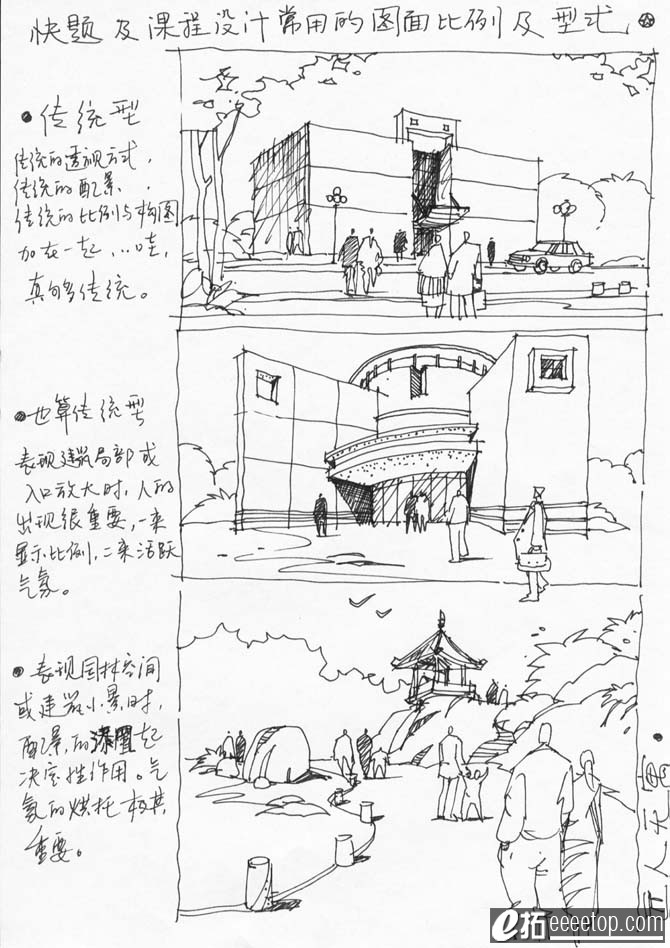 快题及课程设计常用的图面比例及型式
传统型
传统的透视方式,
传统的配景,
传统的比例与构图
加在一起,…哇,
真够传统。
也算传统型
表现建筑局部或
入口放大时,人的
出现很重要,一来
显示比例,二来活跃
气氛。
表现园林空间
或建筑小景时,
配景的 起
决定性作用。气
氛的烘托极其
重要。
e拓 eeeetop.com